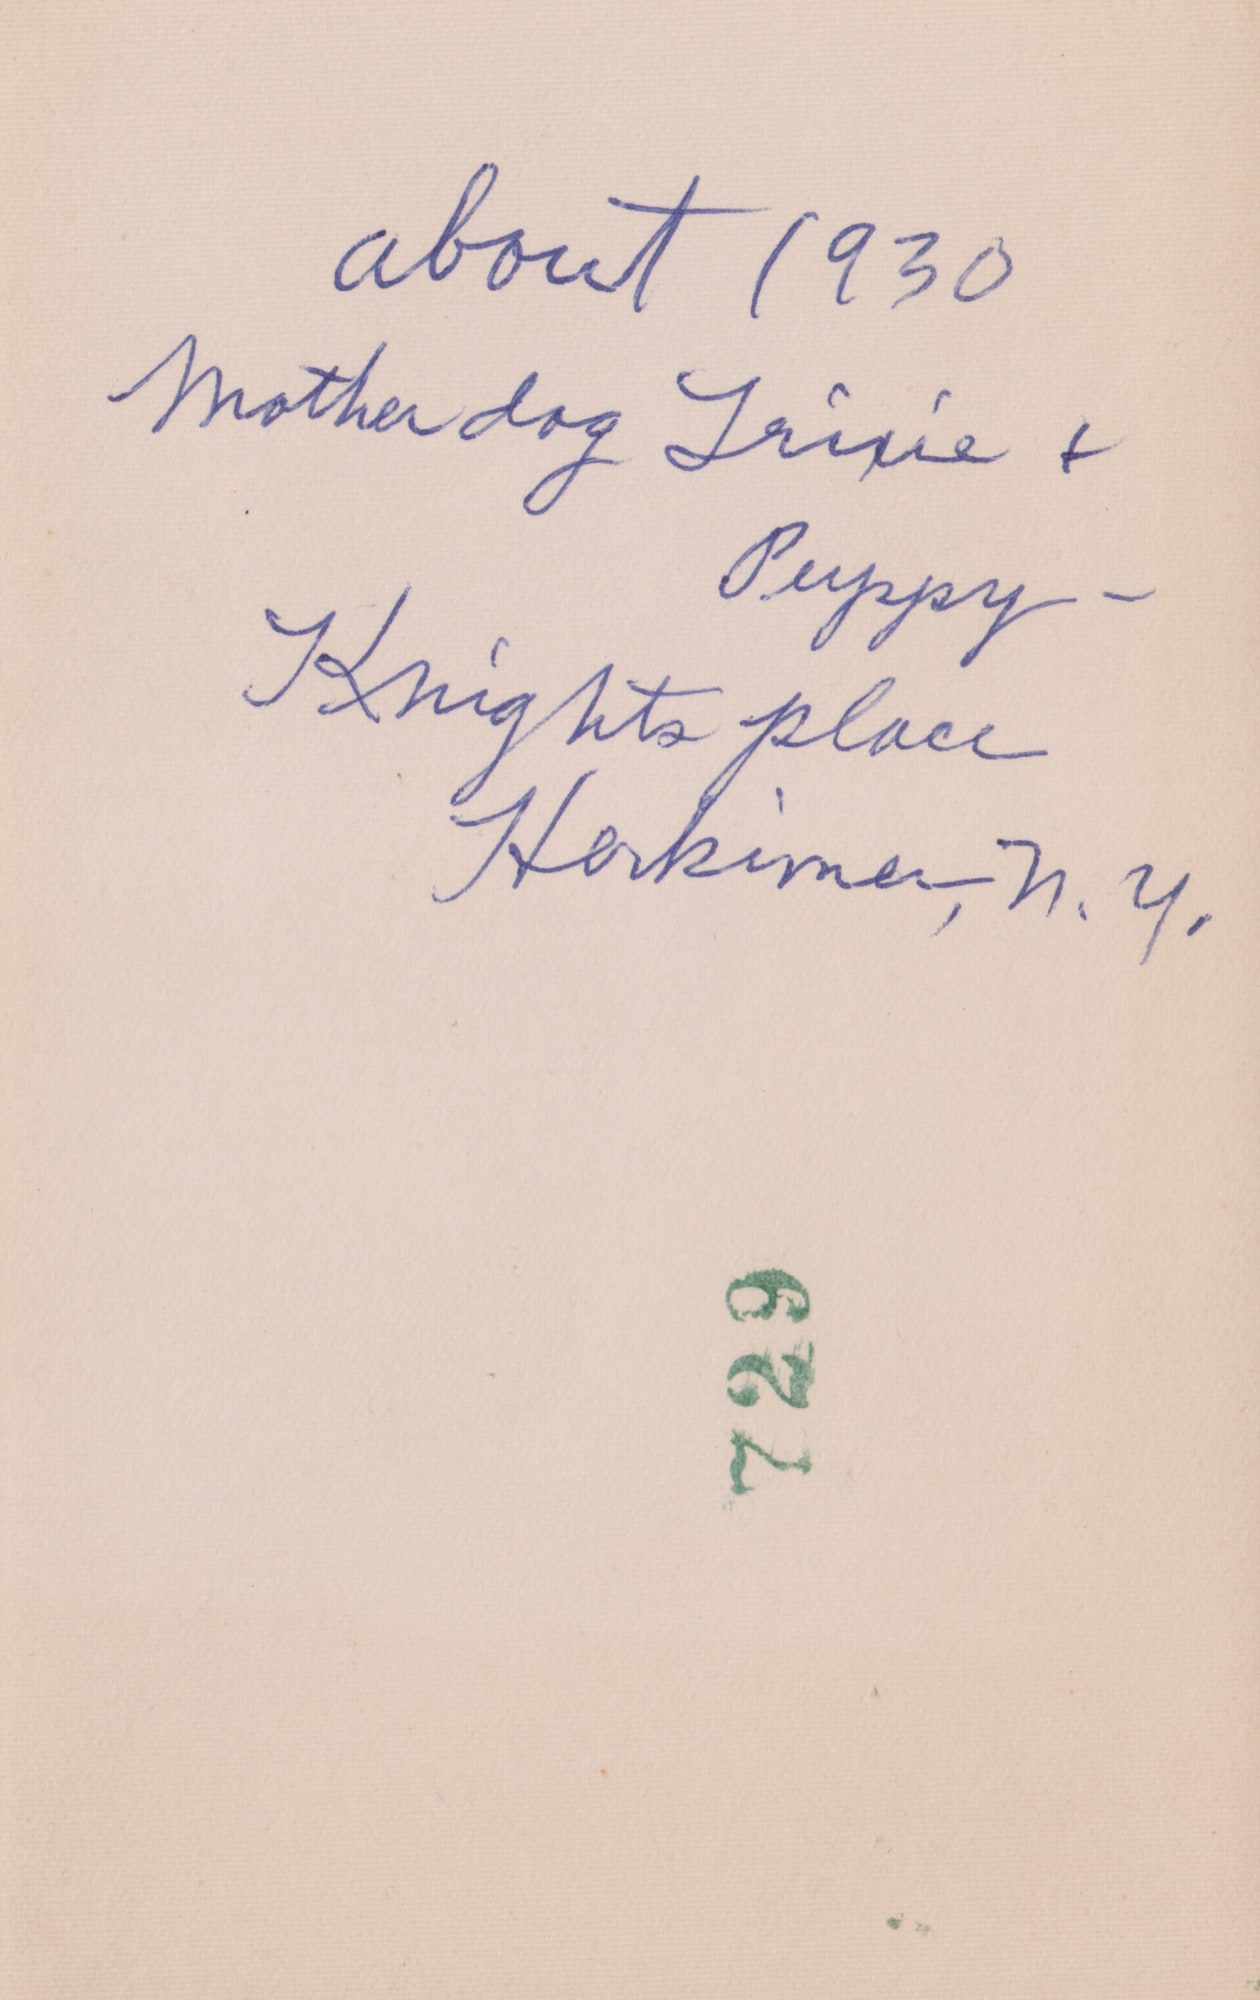 about 1930
Mother dog Trixie +
Puppy -
Knights place
Herkimer, N.Y.
729